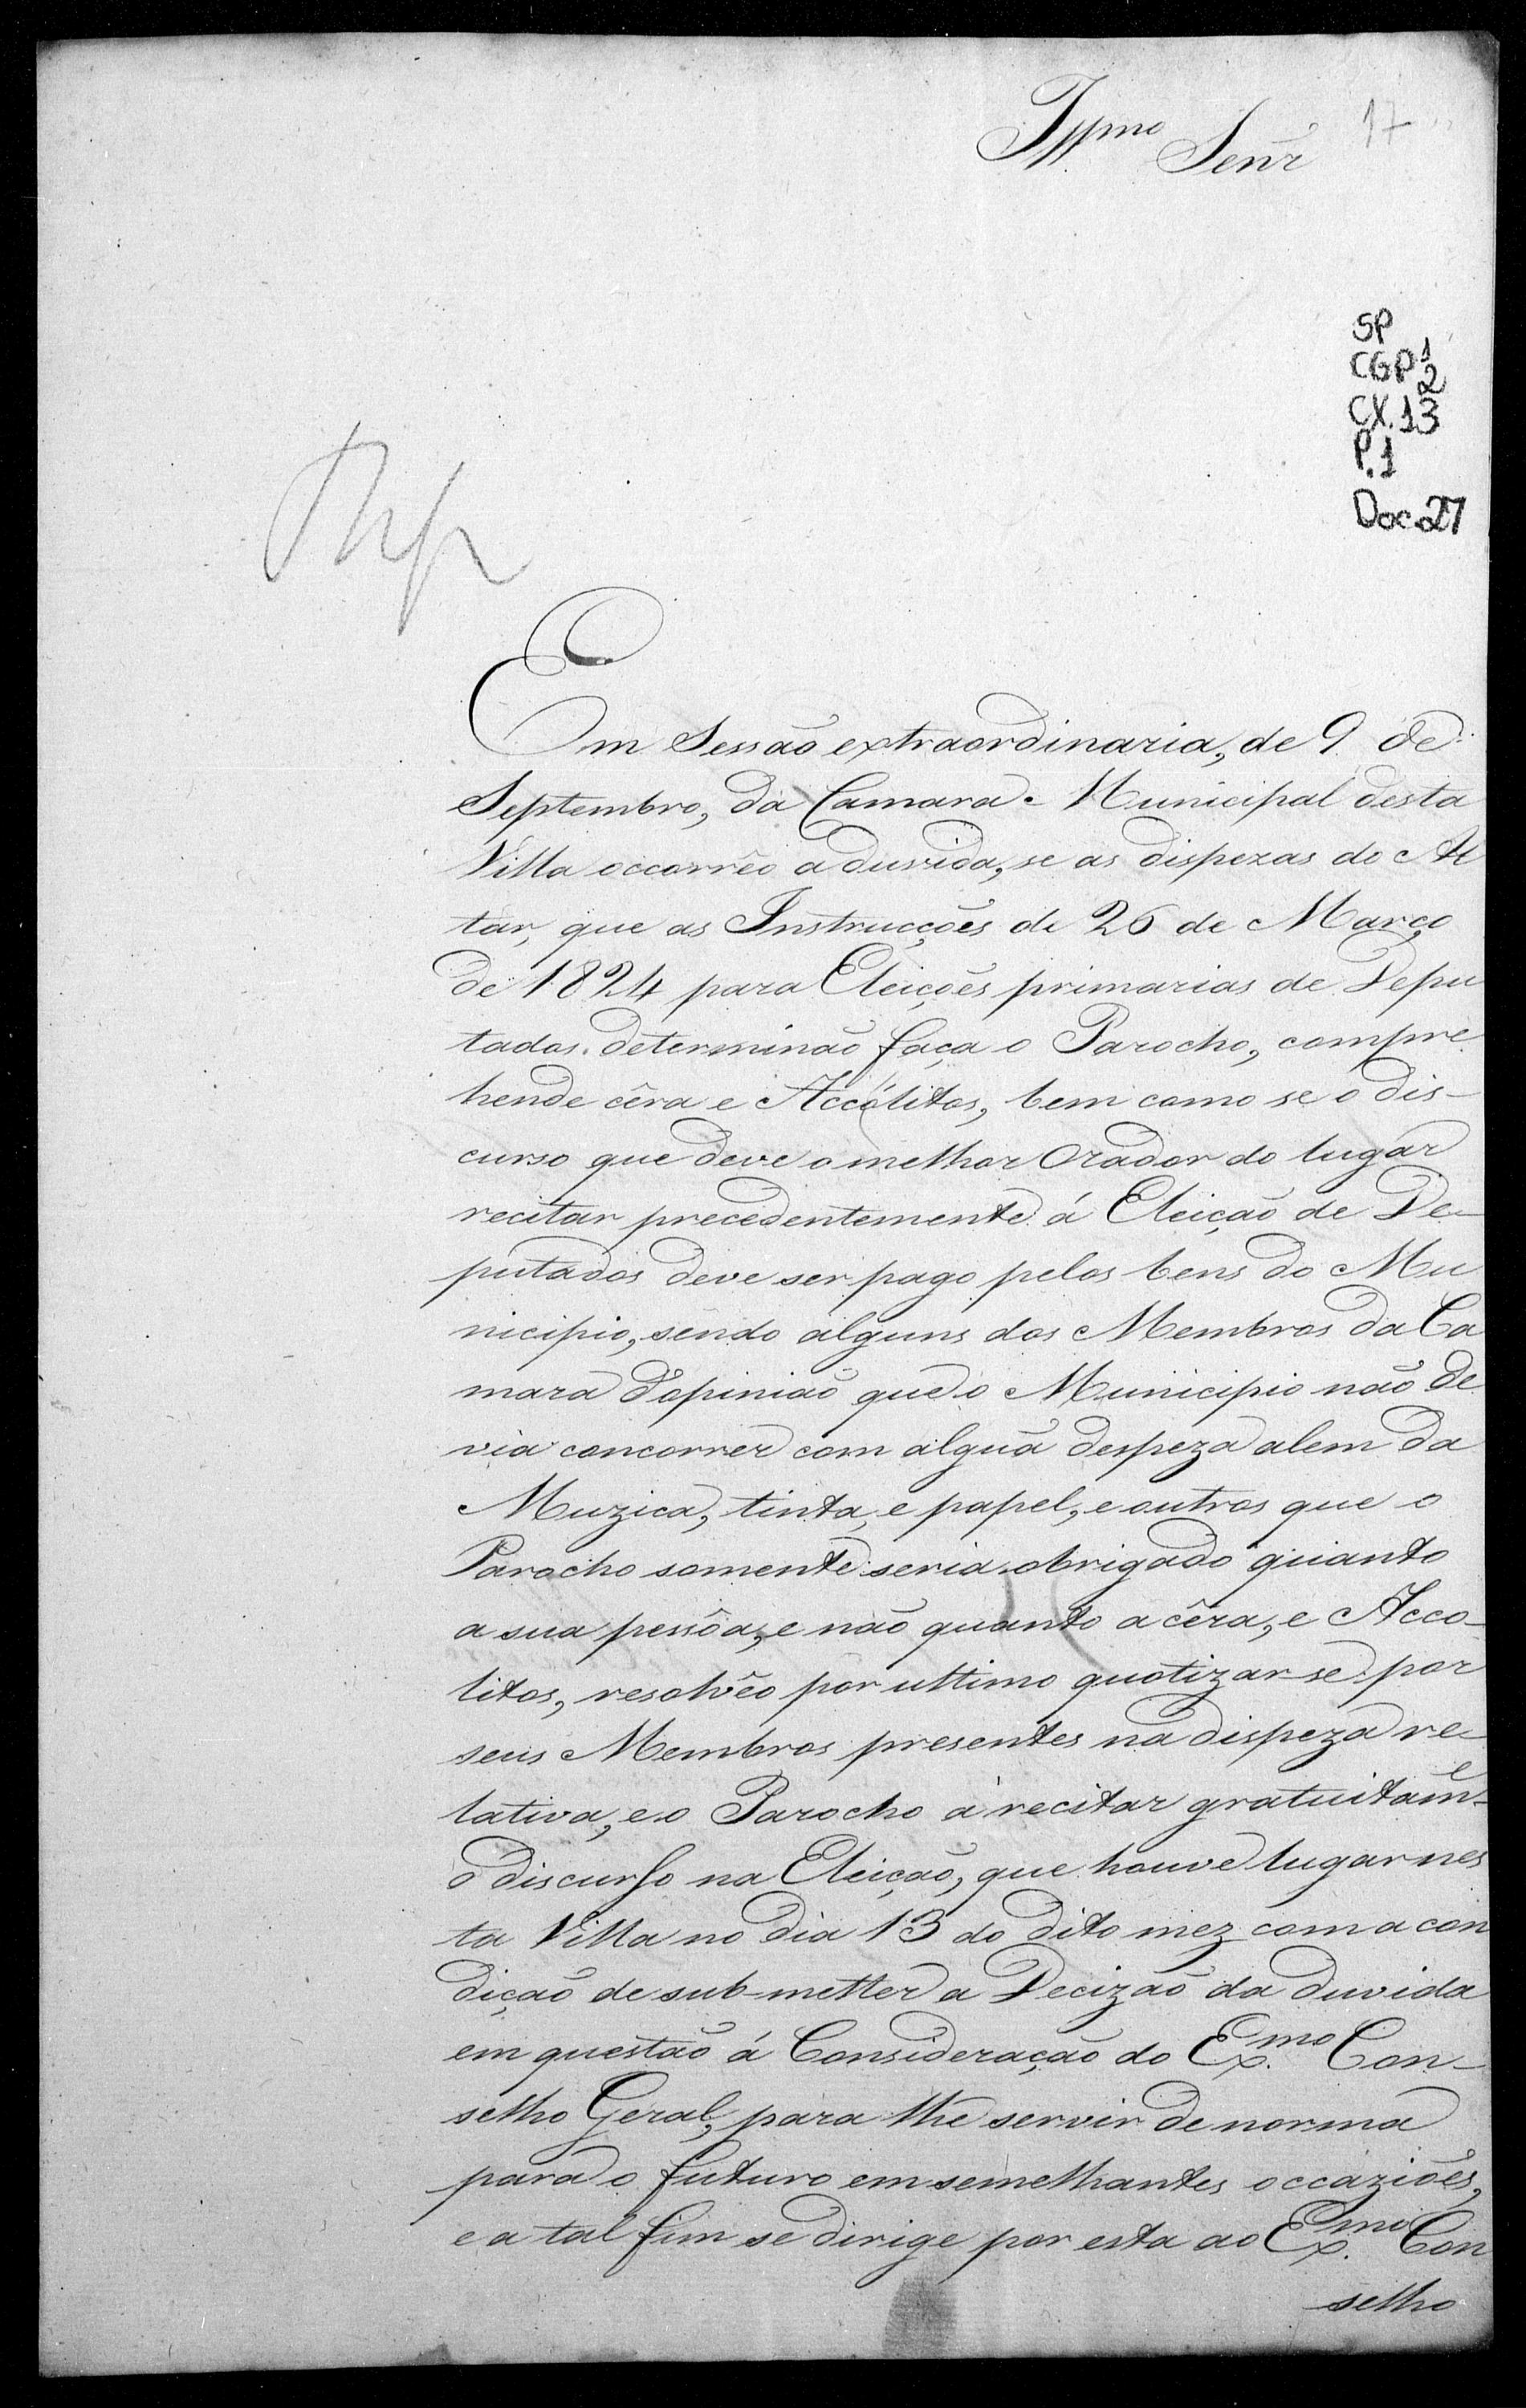 Illmo Senr
17
SP
CGP 1
2
CX. 13
P. 1
Doc. 27
Em Sessão extraordinaria, de 9 de
Septembro, da Camara Municipal desta
Villa occorrêo a duvida, se as dispezas do Al
tar, que as Instrucções de 26 de Março
de 1824 para Eleições primarias de Depu
tados determinão faça o Parocho, compre
hende cêra e Accólitos, bem como se o dis-
curso que deve o melhor Orador do lugar
recitar precedentemente á Eleição de De-
putados deve ser pago pelos bens do Mu
nicipio, sendo alguns dos Membros da Ca
mara d'opinião que o Municipio não de
via concorrer com alguã despeza alem da
Muzica, tinta, e papel, e outros que o
Parocho somente seria obrigado quanto
a sua pessôa, e não quanto a cêra, e Acco-
litos, resolvêo por ultimo quotizar-se por
seus Membros presentes na dispeza re-
lativa, e o Parocho a recitar gratuitamẽ
o discurso na Eleição, que houve lugar nes
ta Villa no dia 13 do dito mez com a con
dição de sub-metter a Decizão da duvida
em questão á Consideração do Ex.mo Con-
selho Geral, para lhe servir de norma
para o futuro em semelhantes occaziões,
e a tal fim se dirige por esta ao Ex.mo Con
selho